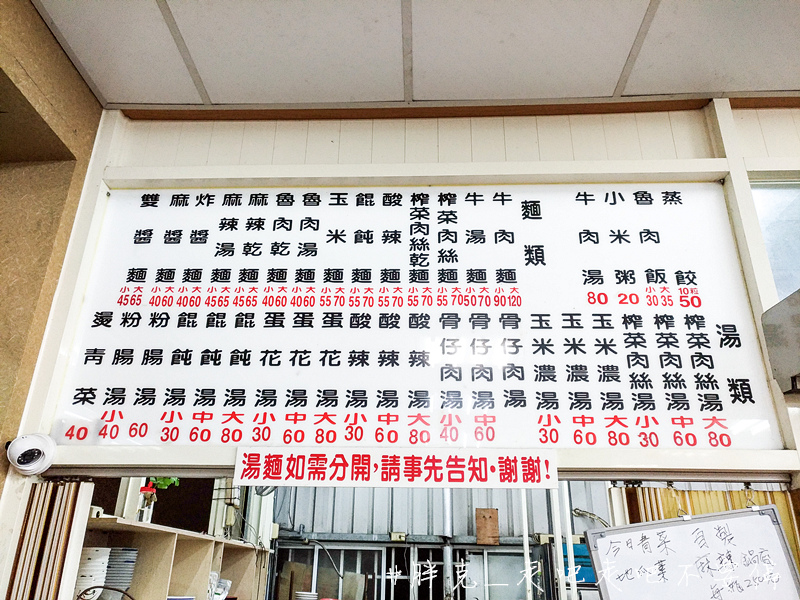 蒸餃 10粒 50
魯肉飯 小30 大35
小米粥 20
牛肉湯 80
麵類
牛肉麵 小90 大120
牛湯麵 小50 大70
榨菜肉絲麵 小55 大70
榨菜肉絲乾麵 小55 大70
酸辣麵 小55 大70
餛飩麵 小55 大70
玉米麵 小55 大70
魯肉湯麵 小40 大60
魯肉乾麵 小40 大60
麻辣乾麵 小45 大65
麻辣湯麵 小45 大65
炸醬麵 小40 大60
麻醬麵 小40 大60
雙醬麵 小45 大65
湯類
榨菜肉絲湯 大80
榨菜肉絲湯 中60
榨菜肉絲湯 小30
玉米濃湯 大80
玉米濃湯 中60
玉米濃湯 小30
骨仔肉湯
骨仔肉湯 中60
骨仔肉湯 小40
酸辣湯 大80
酸辣湯 中60
酸辣湯 小30
蛋花湯 大80
蛋花湯 中60
蛋花湯 小30
餛飩湯 大80
餛飩湯 中60
餛飩湯 小30
粉腸湯 60
粉腸湯 小40
燙青菜 40
湯麵如需分開,請事先告知•謝謝!
今日青菜